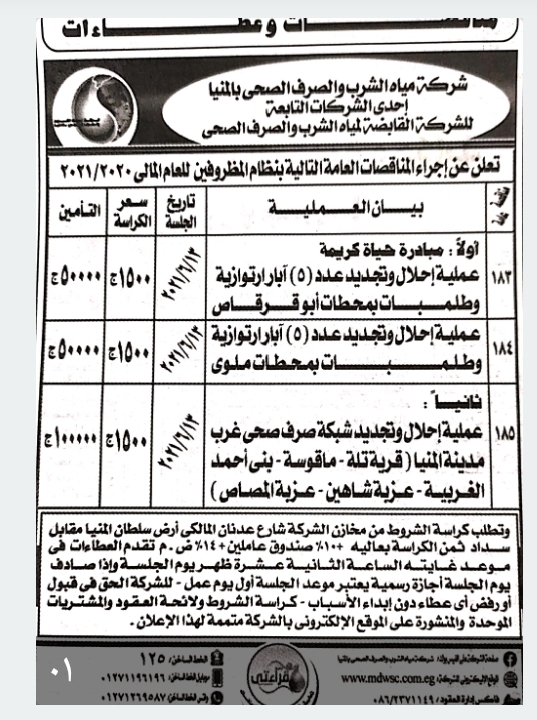 مناقصات وعطاءات
شركة مياه الشرب والصرف الصحى بالمنيا
إحدى الشركات التابعة
للشركة القابضة لمياه الشرب والصرف الصحى
تعلن عن إجراء المناقصات العامة التالية بنظام المظروفين للعام المالى ٢٠٢١/٢٠٢٠
بيان العملية
تاريخ الجلسة
سعر الكراسة
التأمين
أولاً : مبادرة حياة كريمة
١٨٣ عملية إحلال وتجديد عدد (٥) آبار ارتوازية ٢٠٢١/٦/١٣ ١٥٠٠ج ٥٠٠٠٠ج
وطلمبات بمحطات أبو قرقاص
١٨٤ عملية إحلال وتجديد عدد (٥) آبار ارتوازية ٢٠٢١/٦/١٣ ١٥٠٠ج ٥٠٠٠٠ج
وطلمبات بمحطات ملوى
ثانياً :
١٨٥ عملية إحلال وتجديد شبكة صرف صحى غرب ٢٠٢١/٦/١٣ ١٥٠٠ج ١٠٠٠٠٠ج
مدينة المنيا ( قرية تلة - ماقوسة - بنى أحمد
الغربية - عزبة شاهين - عزبة المصاص )
وتطلب كراسة الشروط من مخازن الشركة شارع عدنان المالكى أرض سلطان المنيا مقابل
سداد ثمن الكراسة بعاليه +١٠٪ صندوق عاملين +١٤٪ ض . م تقدم العطاءات فى
موعد غايته الساعة الثانية عشرة ظهر يوم الجلسة وإذا صادف
يوم الجلسة أجازة رسمية يعتبر موعد الجلسة أول يوم عمل - للشركة الحق فى قبول
أو رفض أى عطاء دون إبداء الأسباب - كراسة الشروط ولائحة العقود والمشتريات
الموحدة والمنشورة على الموقع الإلكترونى بالشركة متممة لهذا الإعلان .
صفحة الشركة على الفيس بوك: شركة مياه الشرب والصرف الصحى بالمنيا
الخط الساخن: ١٢٥
الموقع الإليكترونى للشركة: www.mdwsc.com.eg
موبايل الخط الساخن: ٠١٢٧١١٩٦١٩٦
فاكس إدارة العقود: ٠٨٦/٢٣٧١١٤٩
واتس الخط الساخن: ٠١٢٧١٢٦٩٥٨٧
قراءتى
٠١